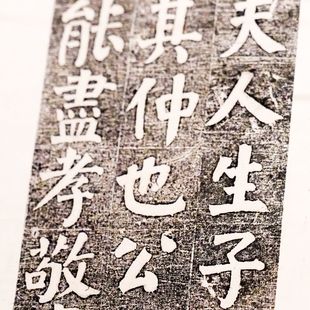 夫人生子
其仲也公
能盡孝敬